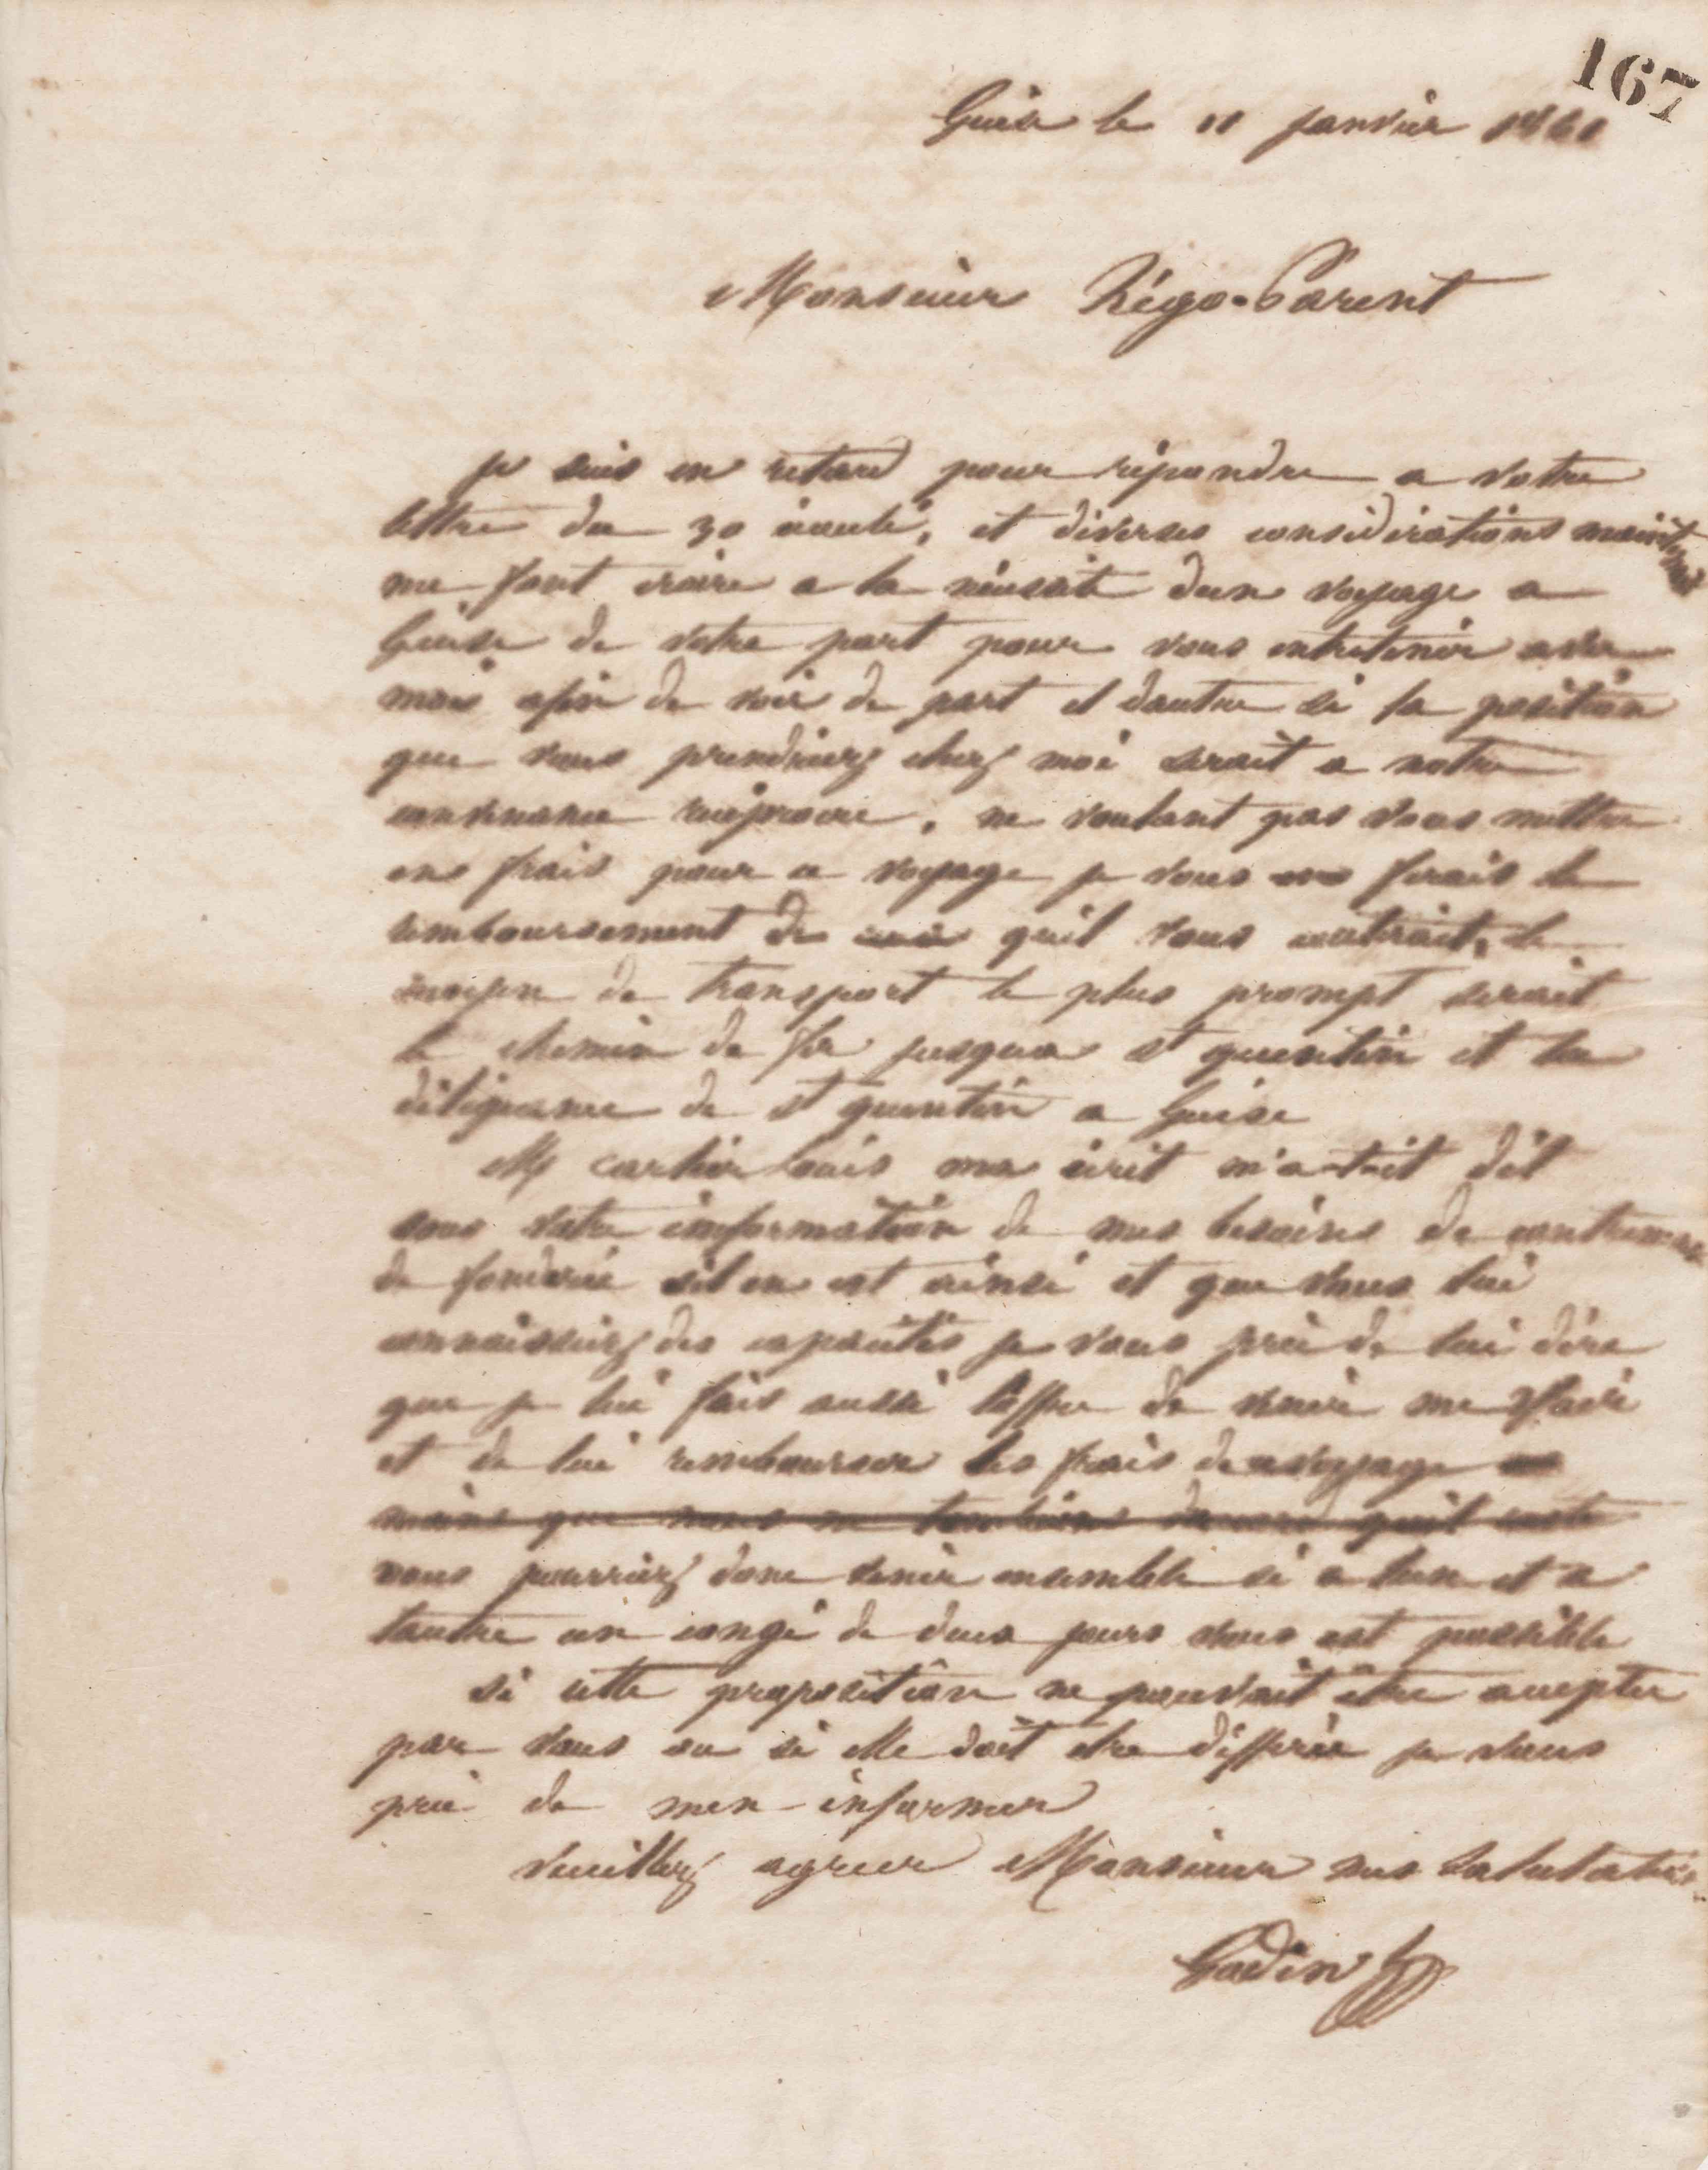 167
Guise le 11 janvier 1861
Monsieur Régo-Parent
je suis en retard pour répondre a votre
lettre du 30 écoulé, et diverses considérations maintenant
me font croire a la nécessité dun voyage a
Guise de votre part pour vous entretenir avec
moi afin de voir de part et dautre si la position
que vous prendriez chez moi serait a notre
convenance réciproque, ne voulant pas vous mettre
en frais pour ce voyage je vous ferais le
remboursement de ce quil vous couterait, le
moyen de transport le plus prompt serait
le chemin de fer jusqua st quentin et la
diligeance de st quentin a Guise
M cartier Louis ma écrit m'a-t-il dit
sous votre information de mes besoins de contremaitre
de fonderie sil en est ainsi et que vous lui
connaissiez des capacités je vous prie de lui dire
que je lui fais aussi l'offre de venir me voir
et de lui rembourser les frais de voyage
moins que nous ne tombions daccord quil
vous pourriez donc venir ensemble si a lun et a
lautre un congé de deux jours vous est possible
si cette proposition ne pouvait être accepter
par vous ou si elle doit etre différée je vous
prie de men informer
Veuillez agreer Monsieur mes salutations
Godin